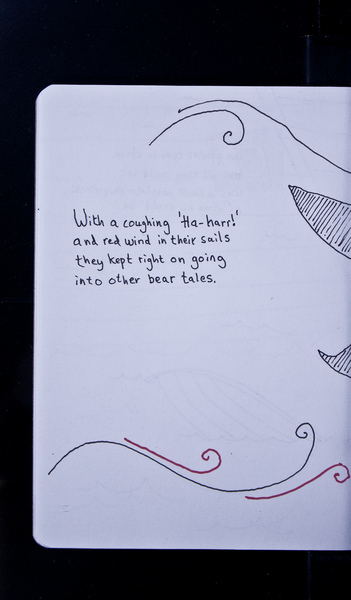 With a coughing 'Ha-harr!'
and red wind in their sails
they kept right on going
into other bear tales.